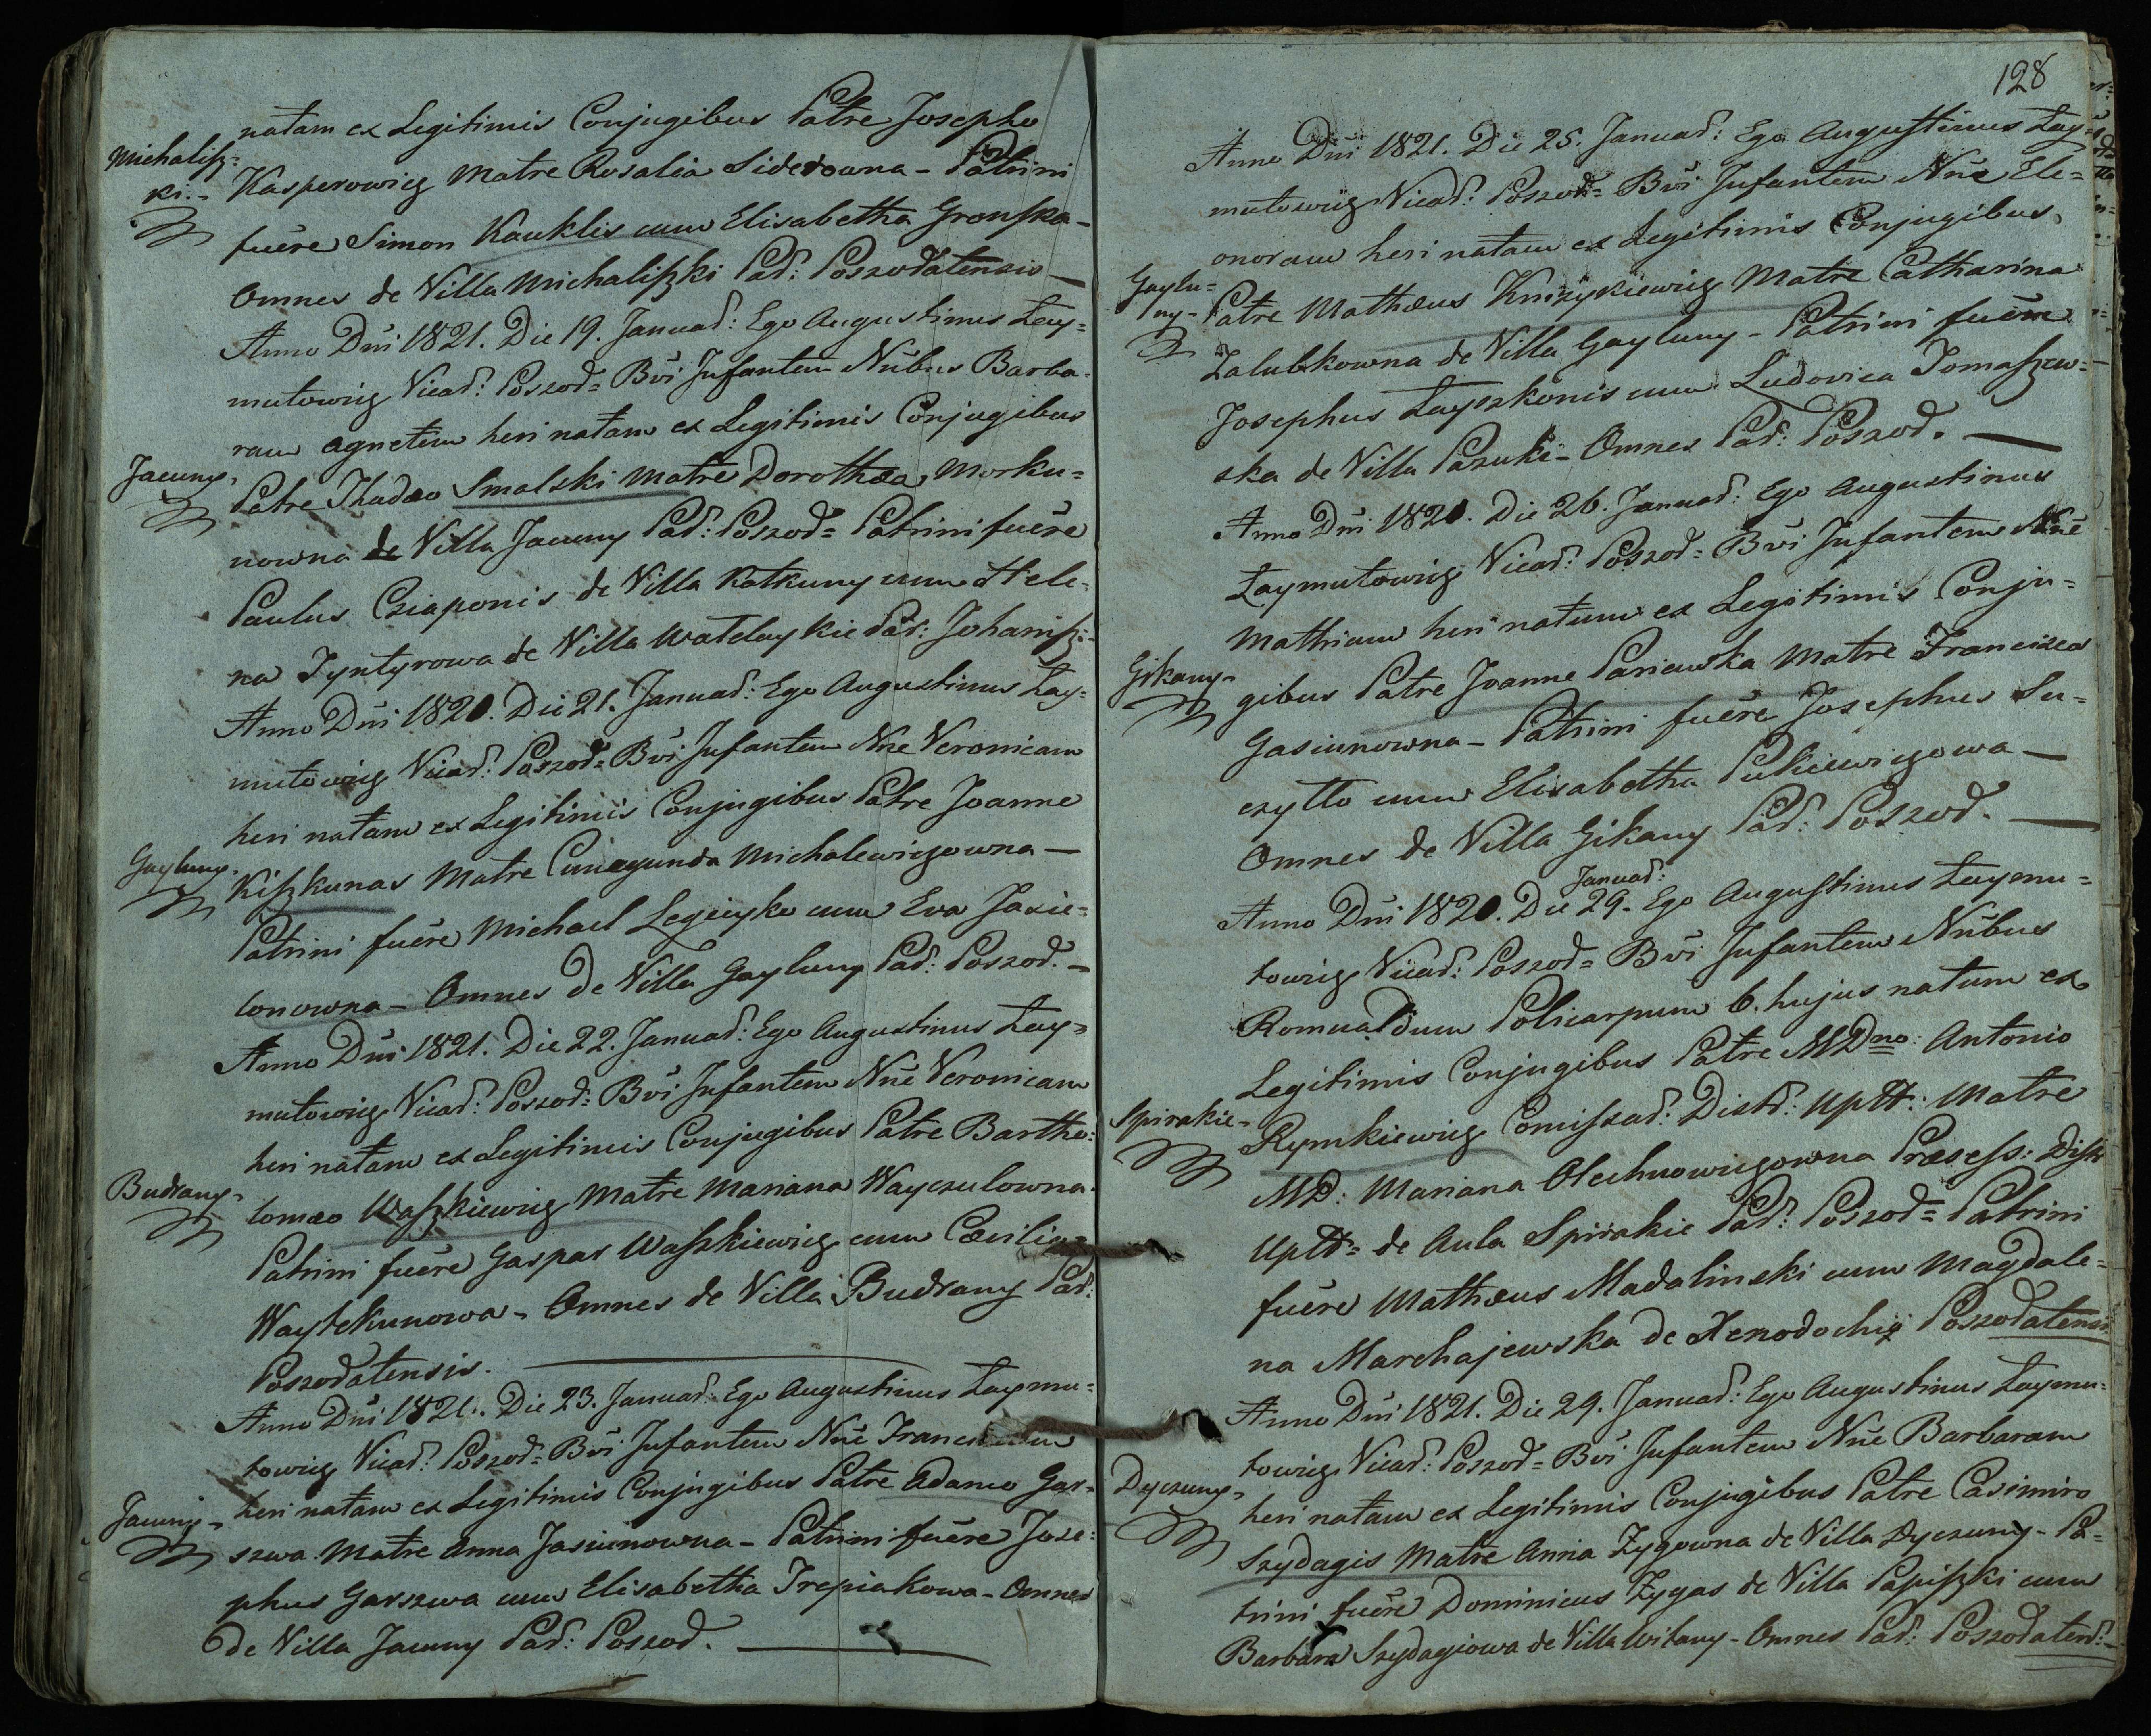 natam ex Legitimis Conjugibus Patre Josepho
Michalisz=
ki.- Kasperowicz Matre Rosalia Siderowna - Patrini
fuêre Simon Kauklis cum Elisabetha Gronska -
Omnes de Villa Michaliszki Par: Poszodatensis -
Anno Dni 1821. Die 19. Januar: Ego Augustinus Łay=
mutowicz Vicar: Poszod= Bvi Infantem Nnbus Barba-
ram Agnetem heri natam ex Legitimis Conjugibus
Jacuny-
Patre Thadæo Smalski Matre Dorothæa Morku=
nowna de Villa Jacuny Par: Poszod= Patrini fuêre
Paulus Cziaponis de Villa Katkuny cum Hele-
na Tyntyrowa de Villa Watdaykie Par: Johanisz:
Anno Dni 1821. Die 21. Januar: Ego Augustinus Łay=
mutowicz Vicar: Poszod= Bvi Infantem Nne Veronicam
heri natam ex Legitimis Conjugibus Patre Joanne
Gayluny-
Kiszkunas Matre Cunegunda Michalewiczowna -
Patrini fuêre Michael Legieyko cum Eva Jasie=
lonowna - Omnes de Villa Gayluny Par: Poszod. -
Anno Dni 1821. Die 22. Januar: Ego Augustinus Łay=
mutowicz Vicar: Poszod= Bvi Infantem Nne Veronicam
heri natam ex Legitimis Conjugibus Patre Bartho:
Budrany-
lomæo Waszkiewicz Matre Mariana Wayczulowna.
Patrini fuêre Gaspar Waszkiewicz cum Cæcilia
Waytekunowa - Omnes de Villa Budrany Par:
Poszodatensis.
Anno Dni 1821. Die 23. Januar: Ego Augustinus Łaymu=
towicz Vicar: Poszod= Bvi Infantem Nne
heri natam ex Legitimis Conjugibus Patre Adamo Gar=
Jacuny-
szwa Matre Anna Jasiunowna - Patrini fuêre Jose:
phus Garszwa cum Elisabetha Trepiakowa - Omnes
de Villa Jacuny Par: Poszod.
128
Anno Dni 1821. Die 25. Januar: Ego Augustinus Łay=
mutowicz Vicar: Poszod= Bvi Infantem Nne Ele=
onoram heri natam ex Legitimis Conjugibus
Gaylu=
ny- Patre Mathæus Knizykiewicz Matre Catharina
Zalubkowna de Villa Gayluny - Patrini fuêre
Josephus Łayszkonis cum Ludovica Tomaszew=
ska de Villa Pazuki - Omnes Par: Poszod.
Anno Dni 1821. Die 26. Januar: Ego Augustinus
Łaymutowicz Vicar: Poszod= Bvi Infantem Nne
Mathiam heri natum ex Legitimis Conju=
Gikany-
gibus Patre Joanne Pariawska Matre Francisca
Gasiunowna - Patrini fuêre Josephus Su=
czytło cum Elisabetha Pukiewiczowa -
Omnes de Villa Gikany Par: Poszod.
Januar:
Anno Dni 1821. Die 29. Ego Augustinus Łaymu=
towicz Vicar: Poszod= Bvi Infantem Nnbus
Romualdum Policarpum 6. hujus natum ex
Legitimis Conjugibus Patre MDno: Antonio
Spirakie-
Rymkiewicz Comissar: Distr: Uptt: Matre
MD: Mariana Olechnowiczowna Præsess: Distr
Uptt= de Aula Spirakie Par: Poszod= Patrini
fuêre Mathæus Madalinski cum Magdale=
na Marchajewska de Xenodochio Poszodatensi
Anno Dni 1821. Die 29. Januar: Ego Augustinus Łaymu=
towicz Vicar: Poszod= Bvi Infantem Nne Barbaram
Dyczuny-
heri natam ex Legitimis Conjugibus Patre Casimiro
Szydagis Matre Anna Zygowna de Villa Dyczuny - Pa=
trini fuêre Dominicus Zygas de Villa Papiszki cum
Barbara Szydagiowa de Villa Witany - Omnes Par: Poszodatens: